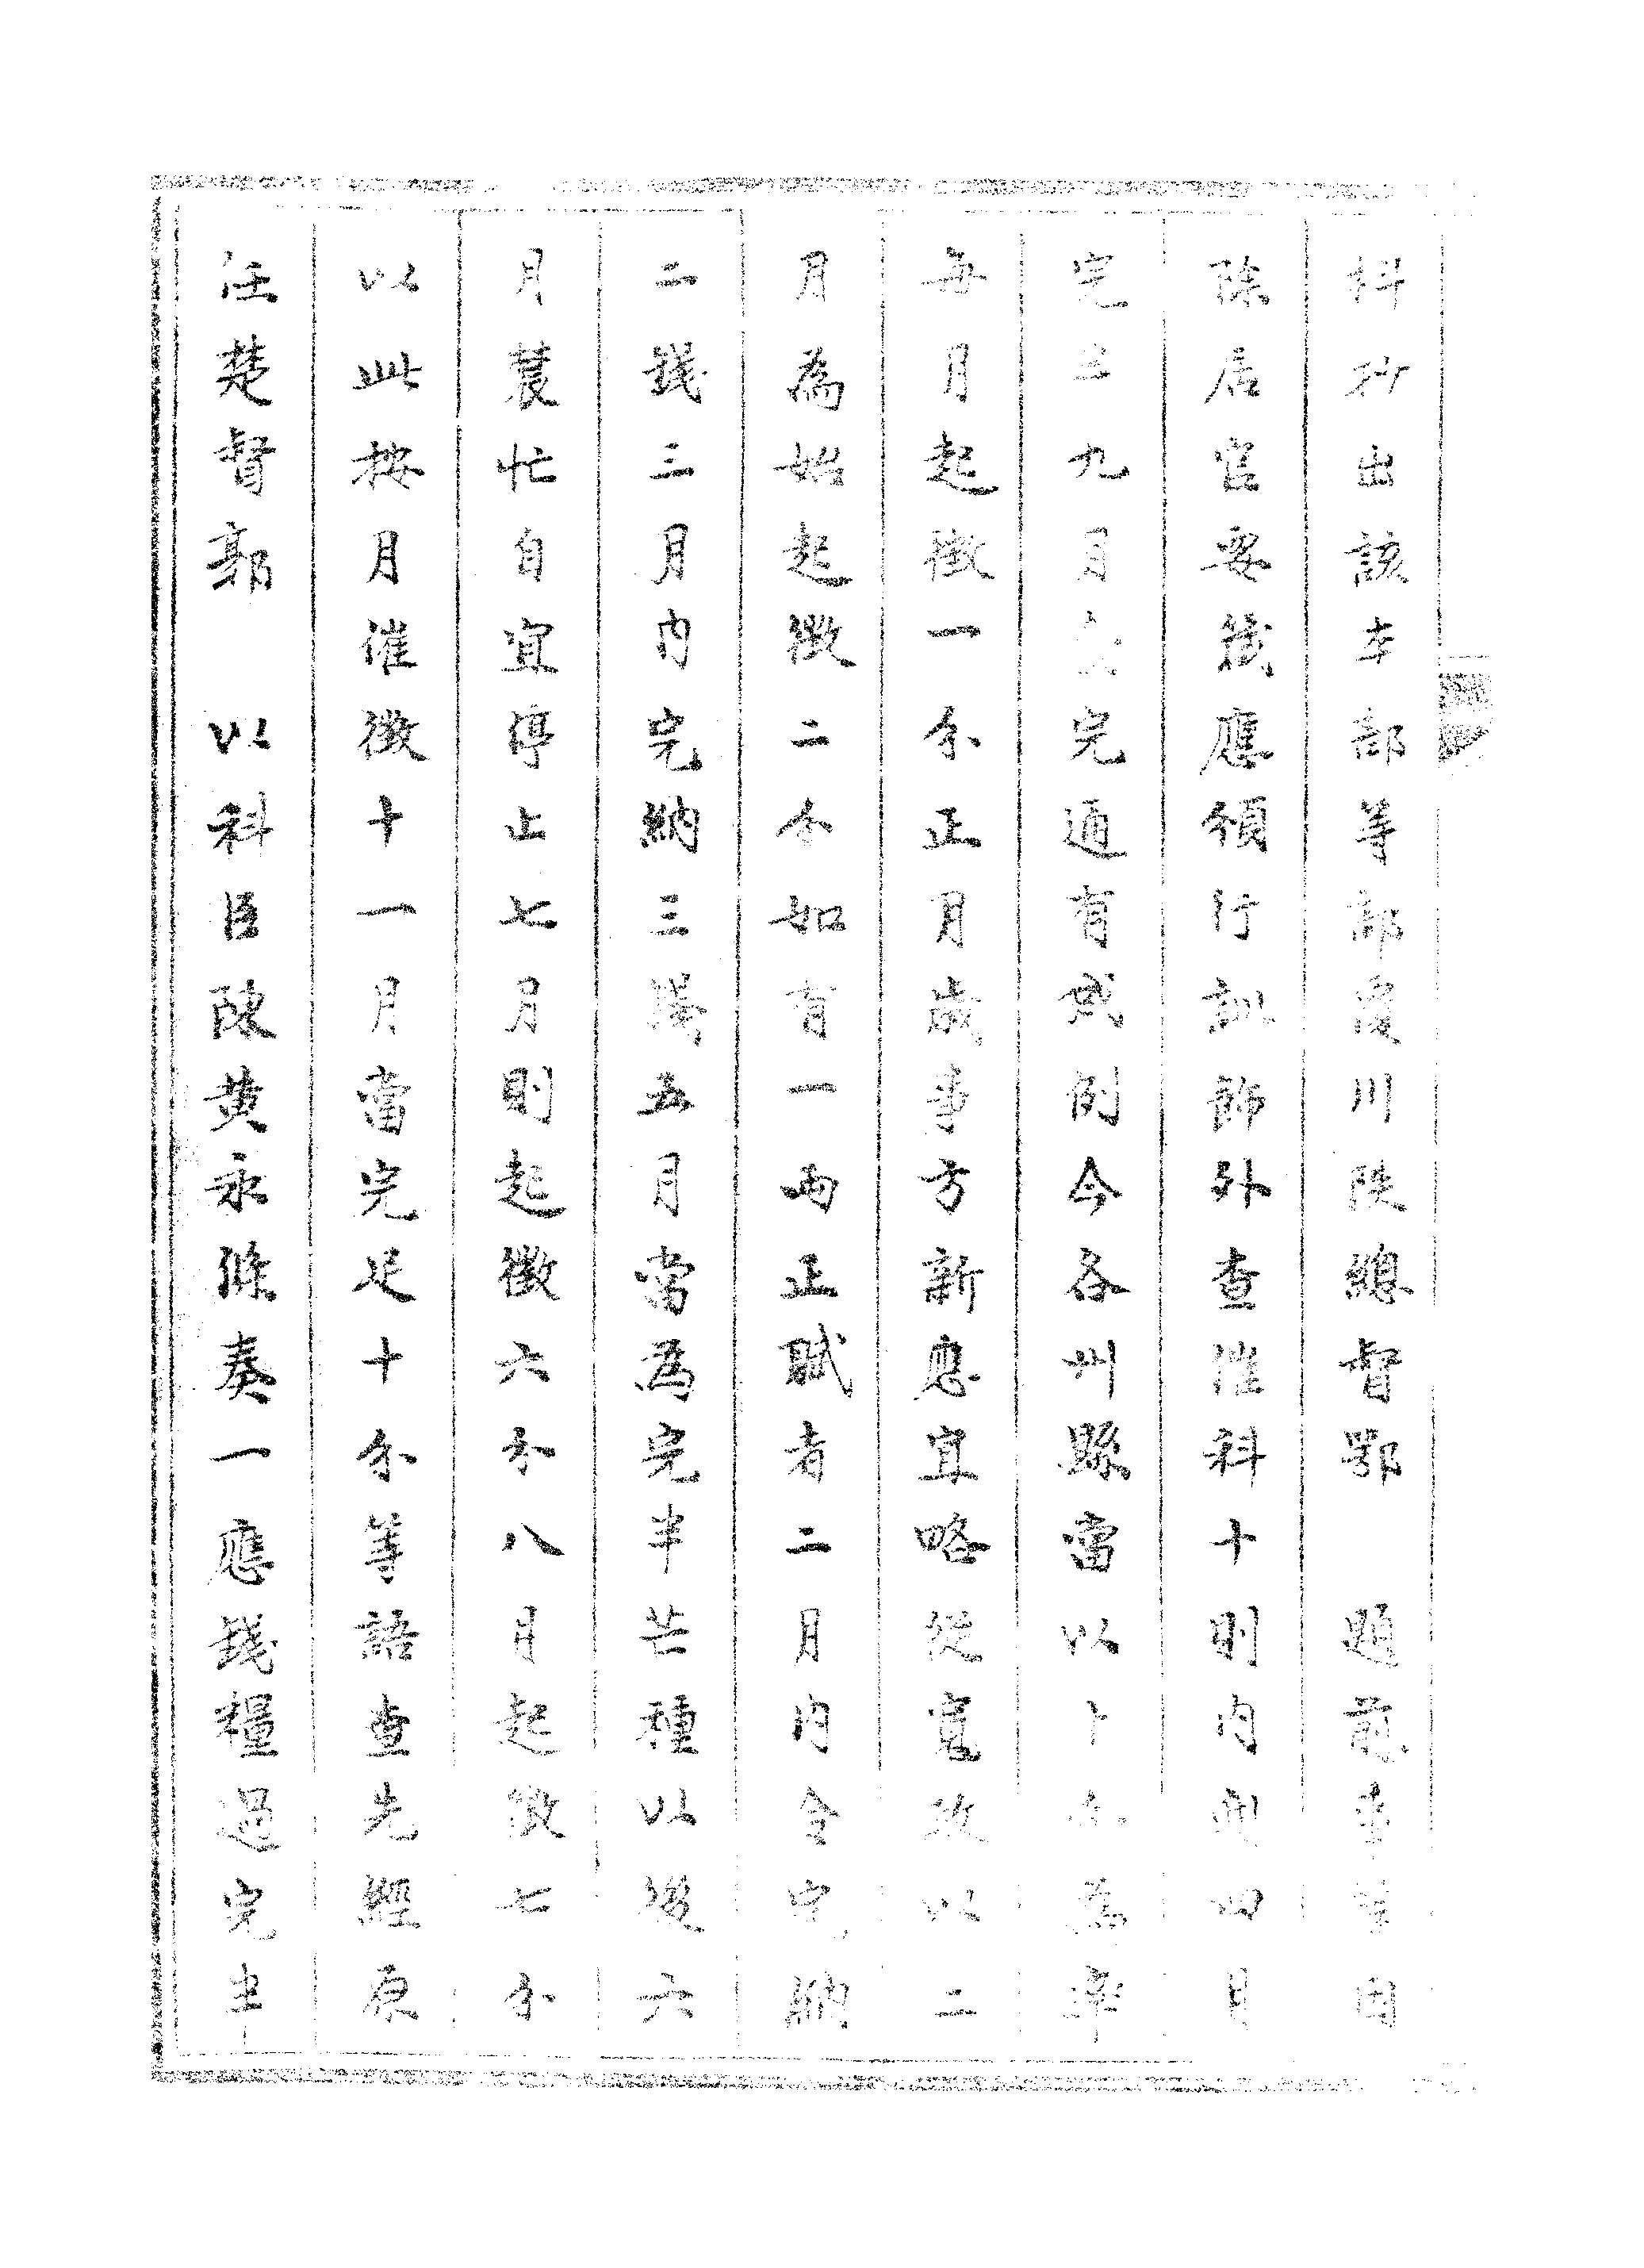 科抄出該本部等部覆川陜總督鄂　題前事等因
除居官要箴應頒行訓飭外查催科十則內開四月
完三九月全完通有成例今各州縣當以十分為率
每月起徵一分正月歲事方新應宜略從寬政以二
月為始起徵二分如有一兩正賦者二月內令完納
二錢三月內完納三錢五月當為完半芒種以後六
月農忙自宜停止七月則起徵六分八月起徵七分
以此按月催徵十一月當完足十分等語查先經原
任楚督郭　以科臣陳黃永條奏一應錢糧過完半